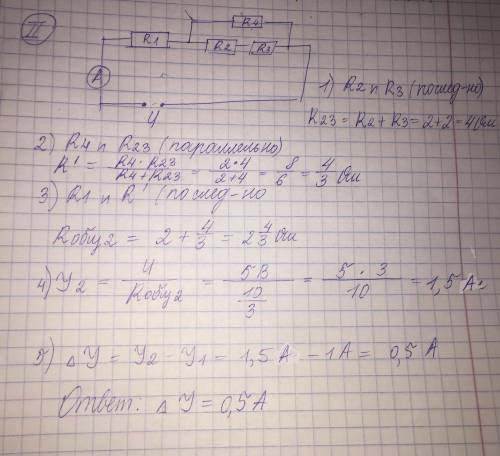 II
R4
R1
R2 R3
A
U
1) R2 и R3 (послед-но)
R23 = R2 + R3 = 2+2 = 4 Ом
2) R4 и R23 (параллельно)
R' = R4 · R23 / R4 + R23 = 2·4 / 2+4 = 8 / 6 = 4 / 3 Ом
3) R1 и R' (послед-но
Rобщ2 = 2 + 4/3 = 2 4/3 Ом
4) У2 = U / Rобщ2 = 5В / 10/3 = 5 · 3 / 10 = 1,5 А.
5) Δ У = У2 - У1 = 1,5 А - 1 А = 0,5 А
Ответ: Δ У = 0,5 А